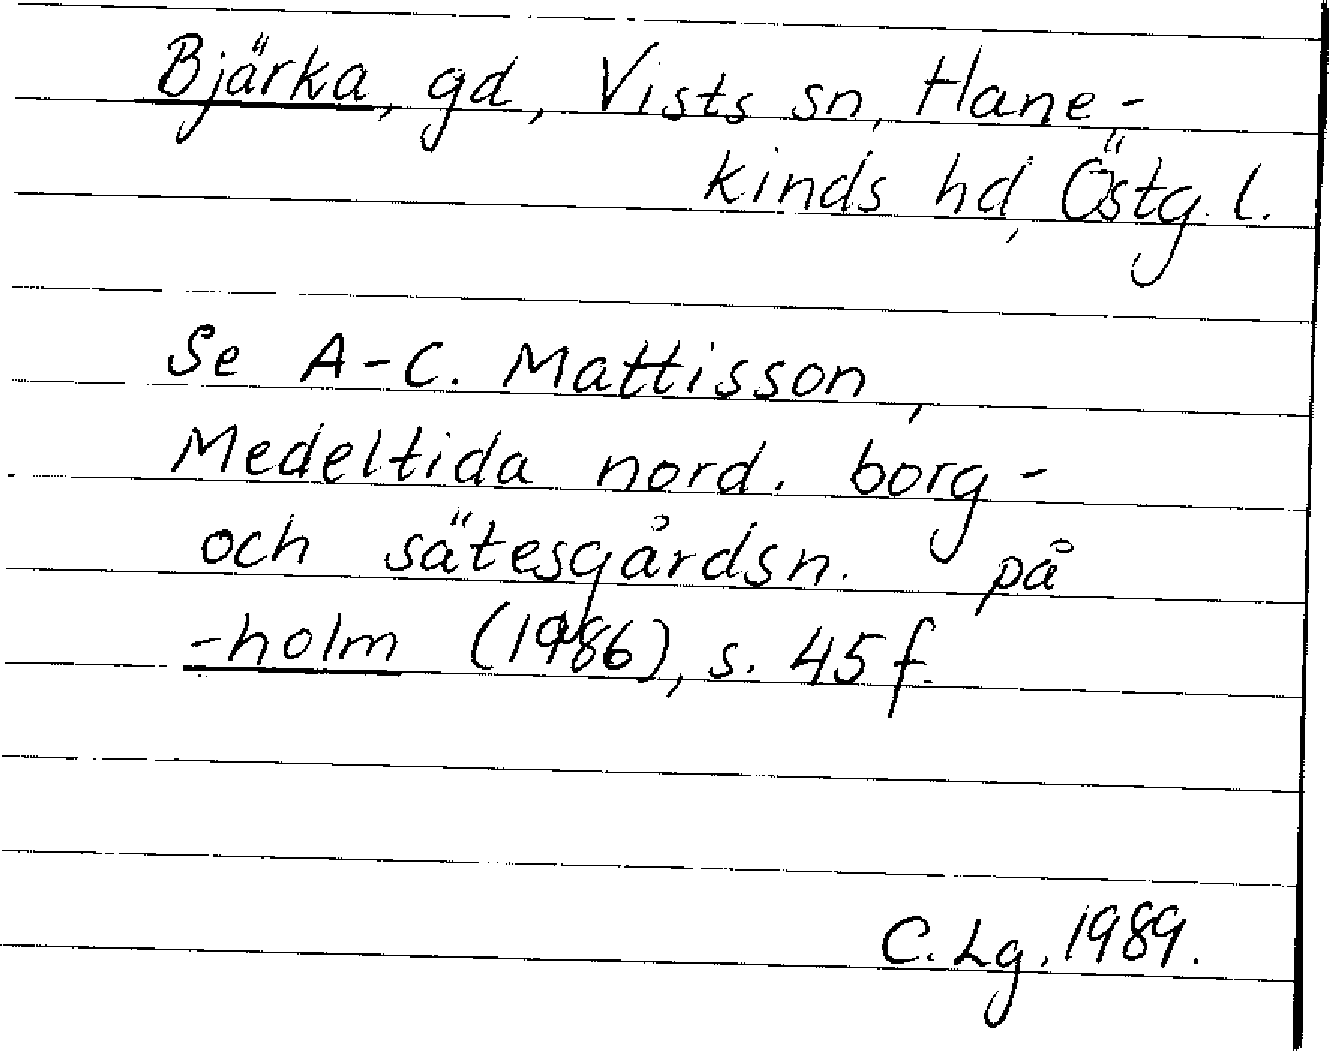 Bjärka, gd, Vists sn, Hane-
kinds hd, Östg. l.
Se A-C. Mattisson,
Medeltida nord. borg-
och sätesgårdsn. på
-holm (1986), s. 45 f.
C. Lg. 1989.